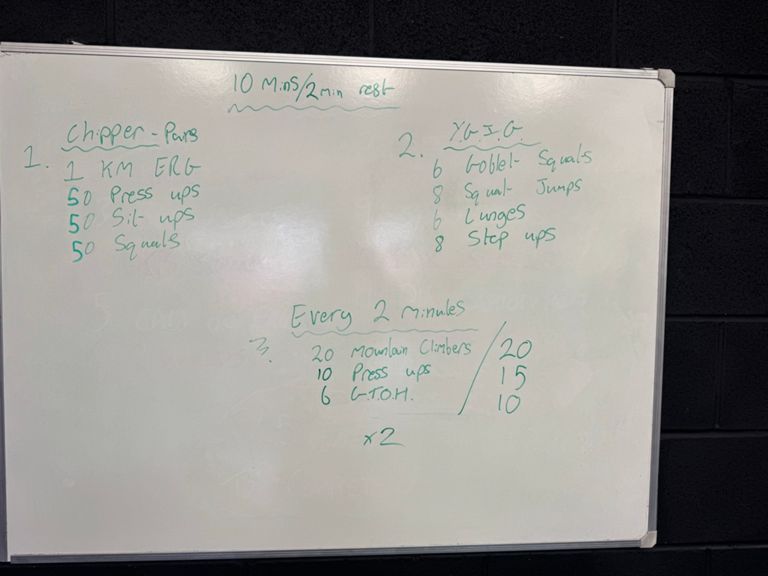 10 Mins/2min rest
1. Chipper - Pairs
1 KM ERG
50 Press ups
50 Sit ups
50 Squats
2. Y.G.I.G.
6 Goblet Squats
8 Squat Jumps
6 Lunges
8 Step ups
3. Every 2 minutes
20 Mountain Climbers / 20
10 Press ups 15
6 G.T.O.H. 10
x2